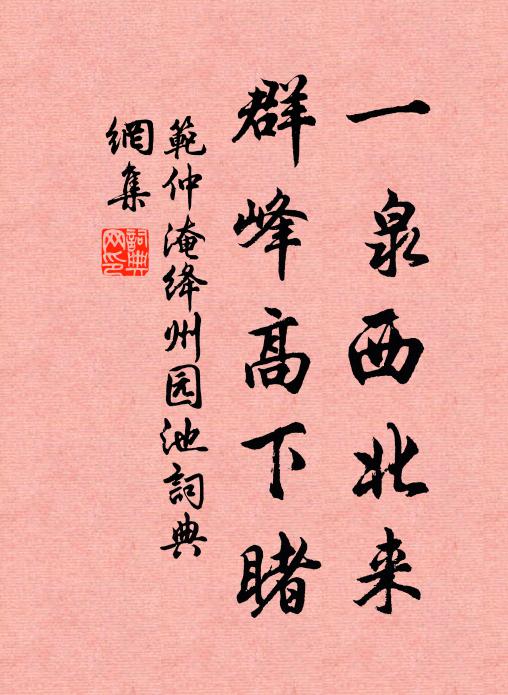 一泉西北来
群峰高下睹
範仲淹绛州园池詞典
網集
詞典网印